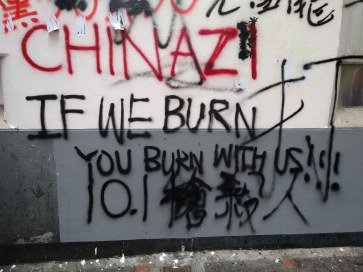 黨
CHINAZI
IF WE BURN
YOU BURN WITH US!!!
10.1 槍殺人